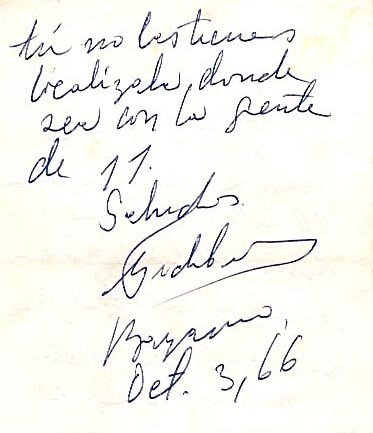 tú no los tienes
localízala donde
sea con la gente
de 11.
Saludos.
Bayamo,
Oct. 3, 66